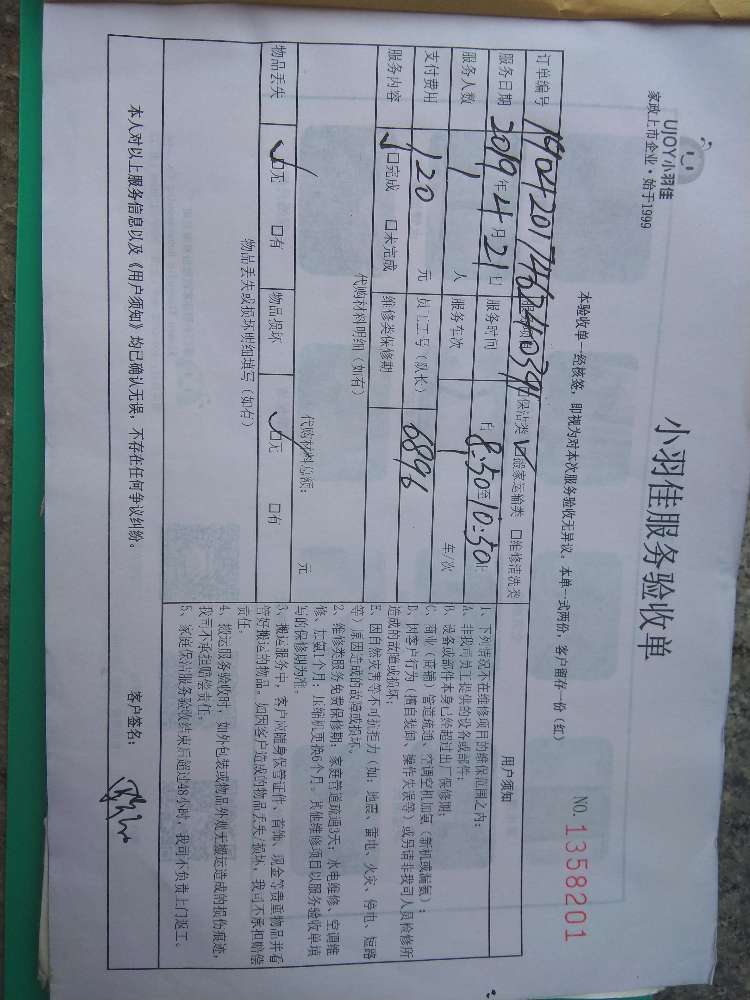 UJOY小羽佳
家政上市企业·始于1999
小羽佳服务验收单
NO. 1358201
本验收单一经核签，即视为对本次服务验收无异议。本单一式两份，客户留存一份（红）
订单编号 服务项目 □保洁类 ✓□搬家运输类 □维修清洗类
服务日期 2019年4月21日 服务时间 自8:50至10:50止
服务人数 1 人 服务车次 1 车/次
支付费用 120 元 员工工号（队长） 6896
服务内容 ✓□完成 □未完成 维修类保修期
代购材料明细（如有）
代购材料总额： 元
物品丢失 ✓□无 □有 物品损坏 ✓□无 □有
物品丢失或损坏明细填写（如有）
用户须知
1、下列情况不在维修项目的维保范围之内：
A、非我司员工提供的设备或部件；
B、设备或部件本身已经超过出厂保修期；
C、商业（店铺）管道疏通、空调空机加氨（新机或漏氨）；
D、因客户行为（擅自装卸、操作失误等）或另请非我司人员检修所
造成的故障或损坏；
E、因自然灾害等不可抗拒力（如：地震、雷电、火灾、停电、短路
等）原因造成的故障或损坏。
2、维修类服务免费保修期：家庭管道疏通3天；水电维修、空调维
修、加氨1个月；压缩机更换6个月。其他维修项目以服务验收单填
写的保修期为准。
3、搬运服务中，客户应随身保管证件、首饰、现金等贵重物品并看
管好搬运的物品。如因客户造成的物品丢失/损坏，我司不承担赔偿
责任。
4、搬运服务验收时，如外包装或物品外观无搬运造成的损伤痕迹，
我司不承担赔偿责任。
5、家庭保洁服务验收结束后超过48小时，我司不负责上门返工。
本人对以上服务信息以及《用户须知》均已确认无误，不存在任何争议纠纷。
客户签名：